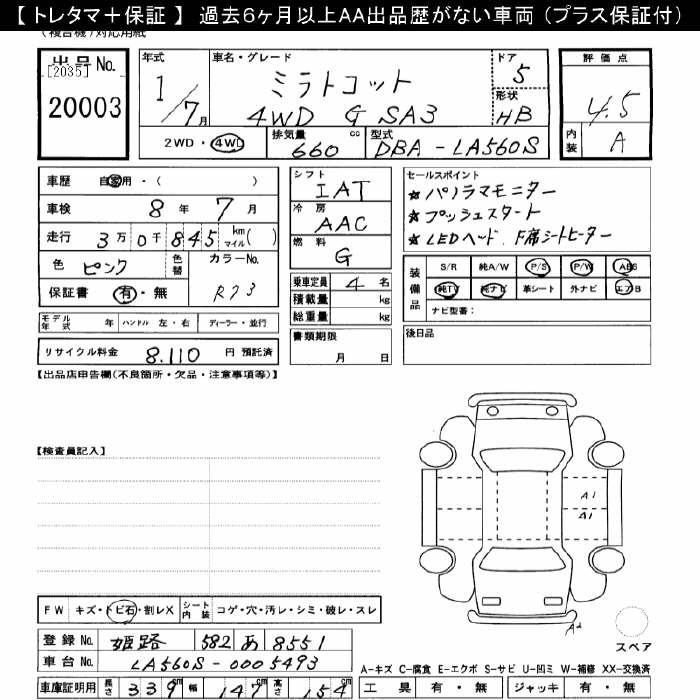 【 トレタマ＋保証 】 過去6ヶ月以上AA出品歴がない車両 (プラス保証付)
(複合機)対応用紙
出品No.
[2035]
20003
年式
1/7月
車名・グレード
ミラトコット
4WD G SA3
ドア
5
形状
HB
評価点
4.5
内装
A
2WD・4WD
排気量
660 cc
型式
DBA - LA560S
車歴 自家用・( )
車検 8年 7月
走行 3万0千845 km マイル( )
色 ピンク
色替
カラーNo.
R73
保証書 有・無
シフト
IAT
冷房
AAC
燃料
G
乗車定員 4名
積載量 kg
総重量 kg
書類期限
月 日
セールスポイント
★パノラマモニター
★プッシュスタート
★LEDヘッド、F席シートヒーター
装備品
S/R 純A/W P/S P/W ABS
純TV 純ナビ 革シート 外ナビ エアB
ナビ型番：
後日品
モデル年式 年 ハンドル 左・右 ディーラー・並行
リサイクル料金 8.110 円 預託済
【出品店申告欄(不良箇所・欠品・注意事項等)】
【検査員記入】
A1
A1
A2
スペア
FW キズ・トビ石・割レX
シート内装 コゲ・穴・汚レ・シミ・破レ・スレ
登録No. 姫路 582 あ 8551
車台No. LA560S-0005493
車庫証明用 長さ 339cm 幅 147cm 高さ 154cm
A-キズ C-腐食 E-エクボ S-サビ U-凹ミ W-補修 XX-交換済
工具 有・無 ジャッキ 有・無